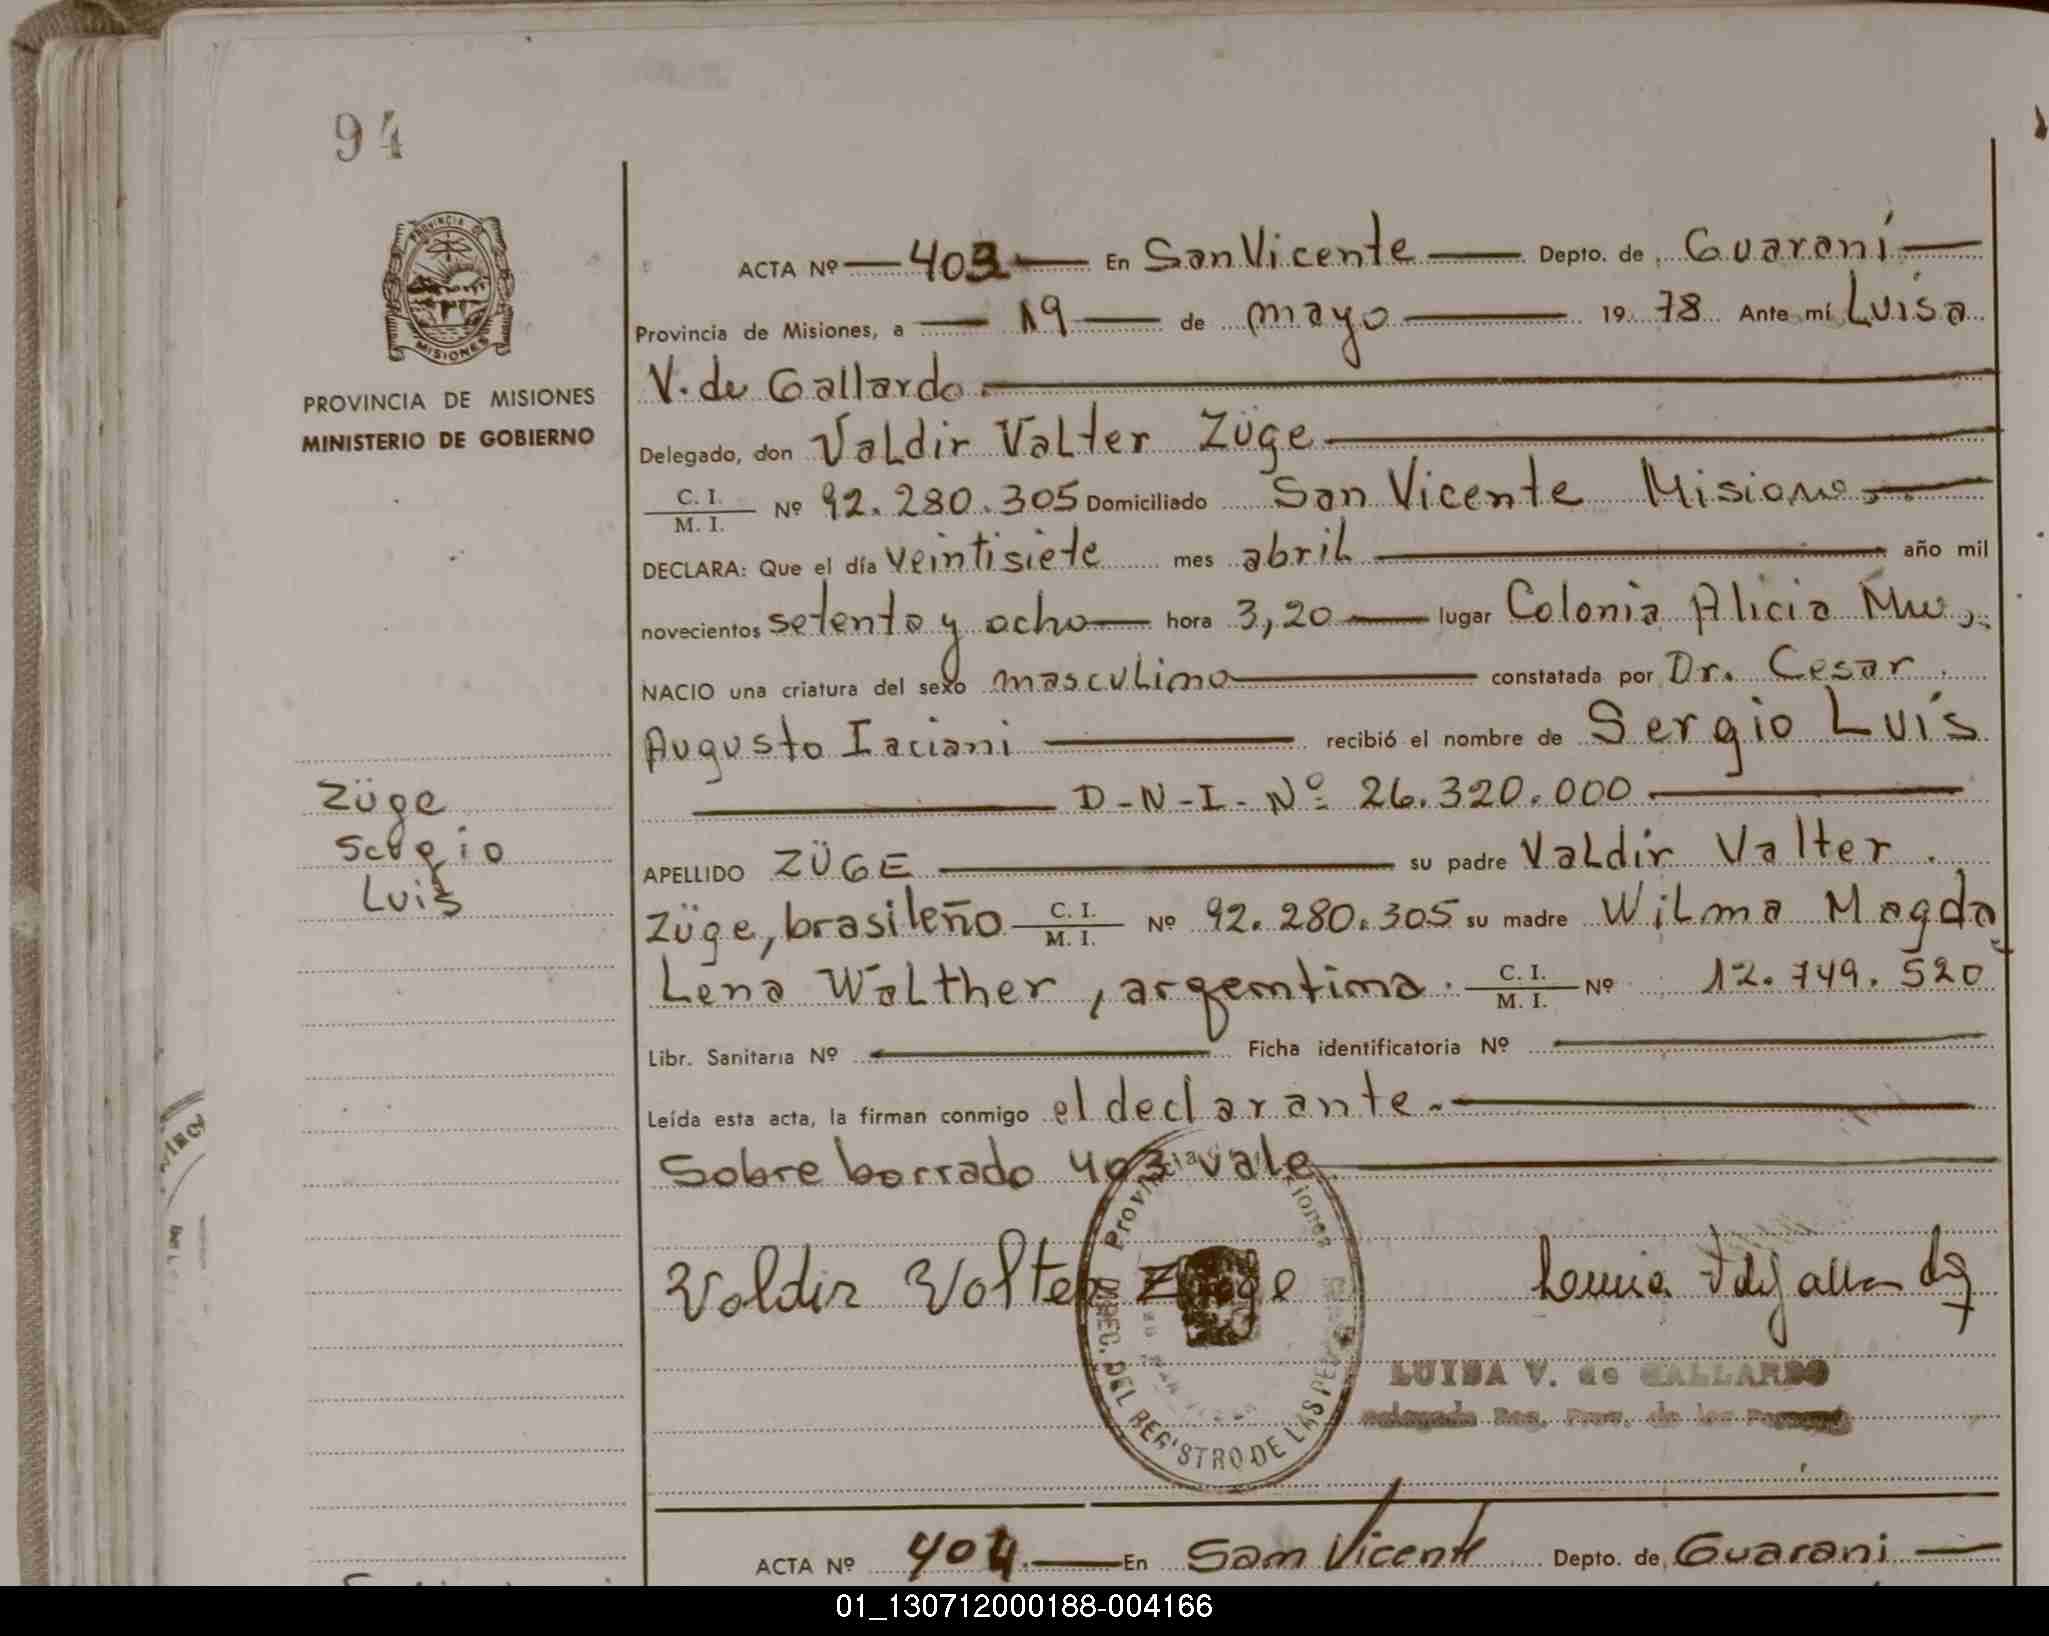 94
PROVINCIA DE
MISIONES
PROVINCIA DE MISIONES
MINISTERIO DE GOBIERNO
ACTA Nº 403 En San Vicente Depto. de Guaraní
Provincia de Misiones, a 19 de mayo 19 78 Ante mí Luisa
V. de Gallardo
Delegado, don Valdir Valter Züge
C. I. / M. I. Nº 92.280.305 Domiciliado San Vicente Misiones
DECLARA: Que el día veintisiete mes abril año mil
novecientos setenta y ocho hora 3,20 lugar Colonia Alicia Mnes.
NACIO una criatura del sexo masculino constatada por Dr. Cesar
Augusto Iaciani recibió el nombre de Sergio Luís
D-N-I-Nº 26.320.000
Züge
Sergio
Luis
APELLIDO ZÜGE su padre Valdir Valter
Züge, brasileño C. I. / M. I. Nº 92.280.305 su madre Wilma Magda
Lena Walther, argentina. C. I. / M. I. Nº 12.749.520
Libr. Sanitaria Nº Ficha identificatoria Nº
Leída esta acta, la firman conmigo el declarante.
Sobre borrado 403 vale
Valdir Valter Züge
LUISA V. de GALLARDO
Delegada Reg. Prov. de las Personas
DIREC. DEL REGISTRO DE LAS PERSONAS
ACTA Nº 404 En San Vicente Depto. de Guarani
01_130712000188-004166